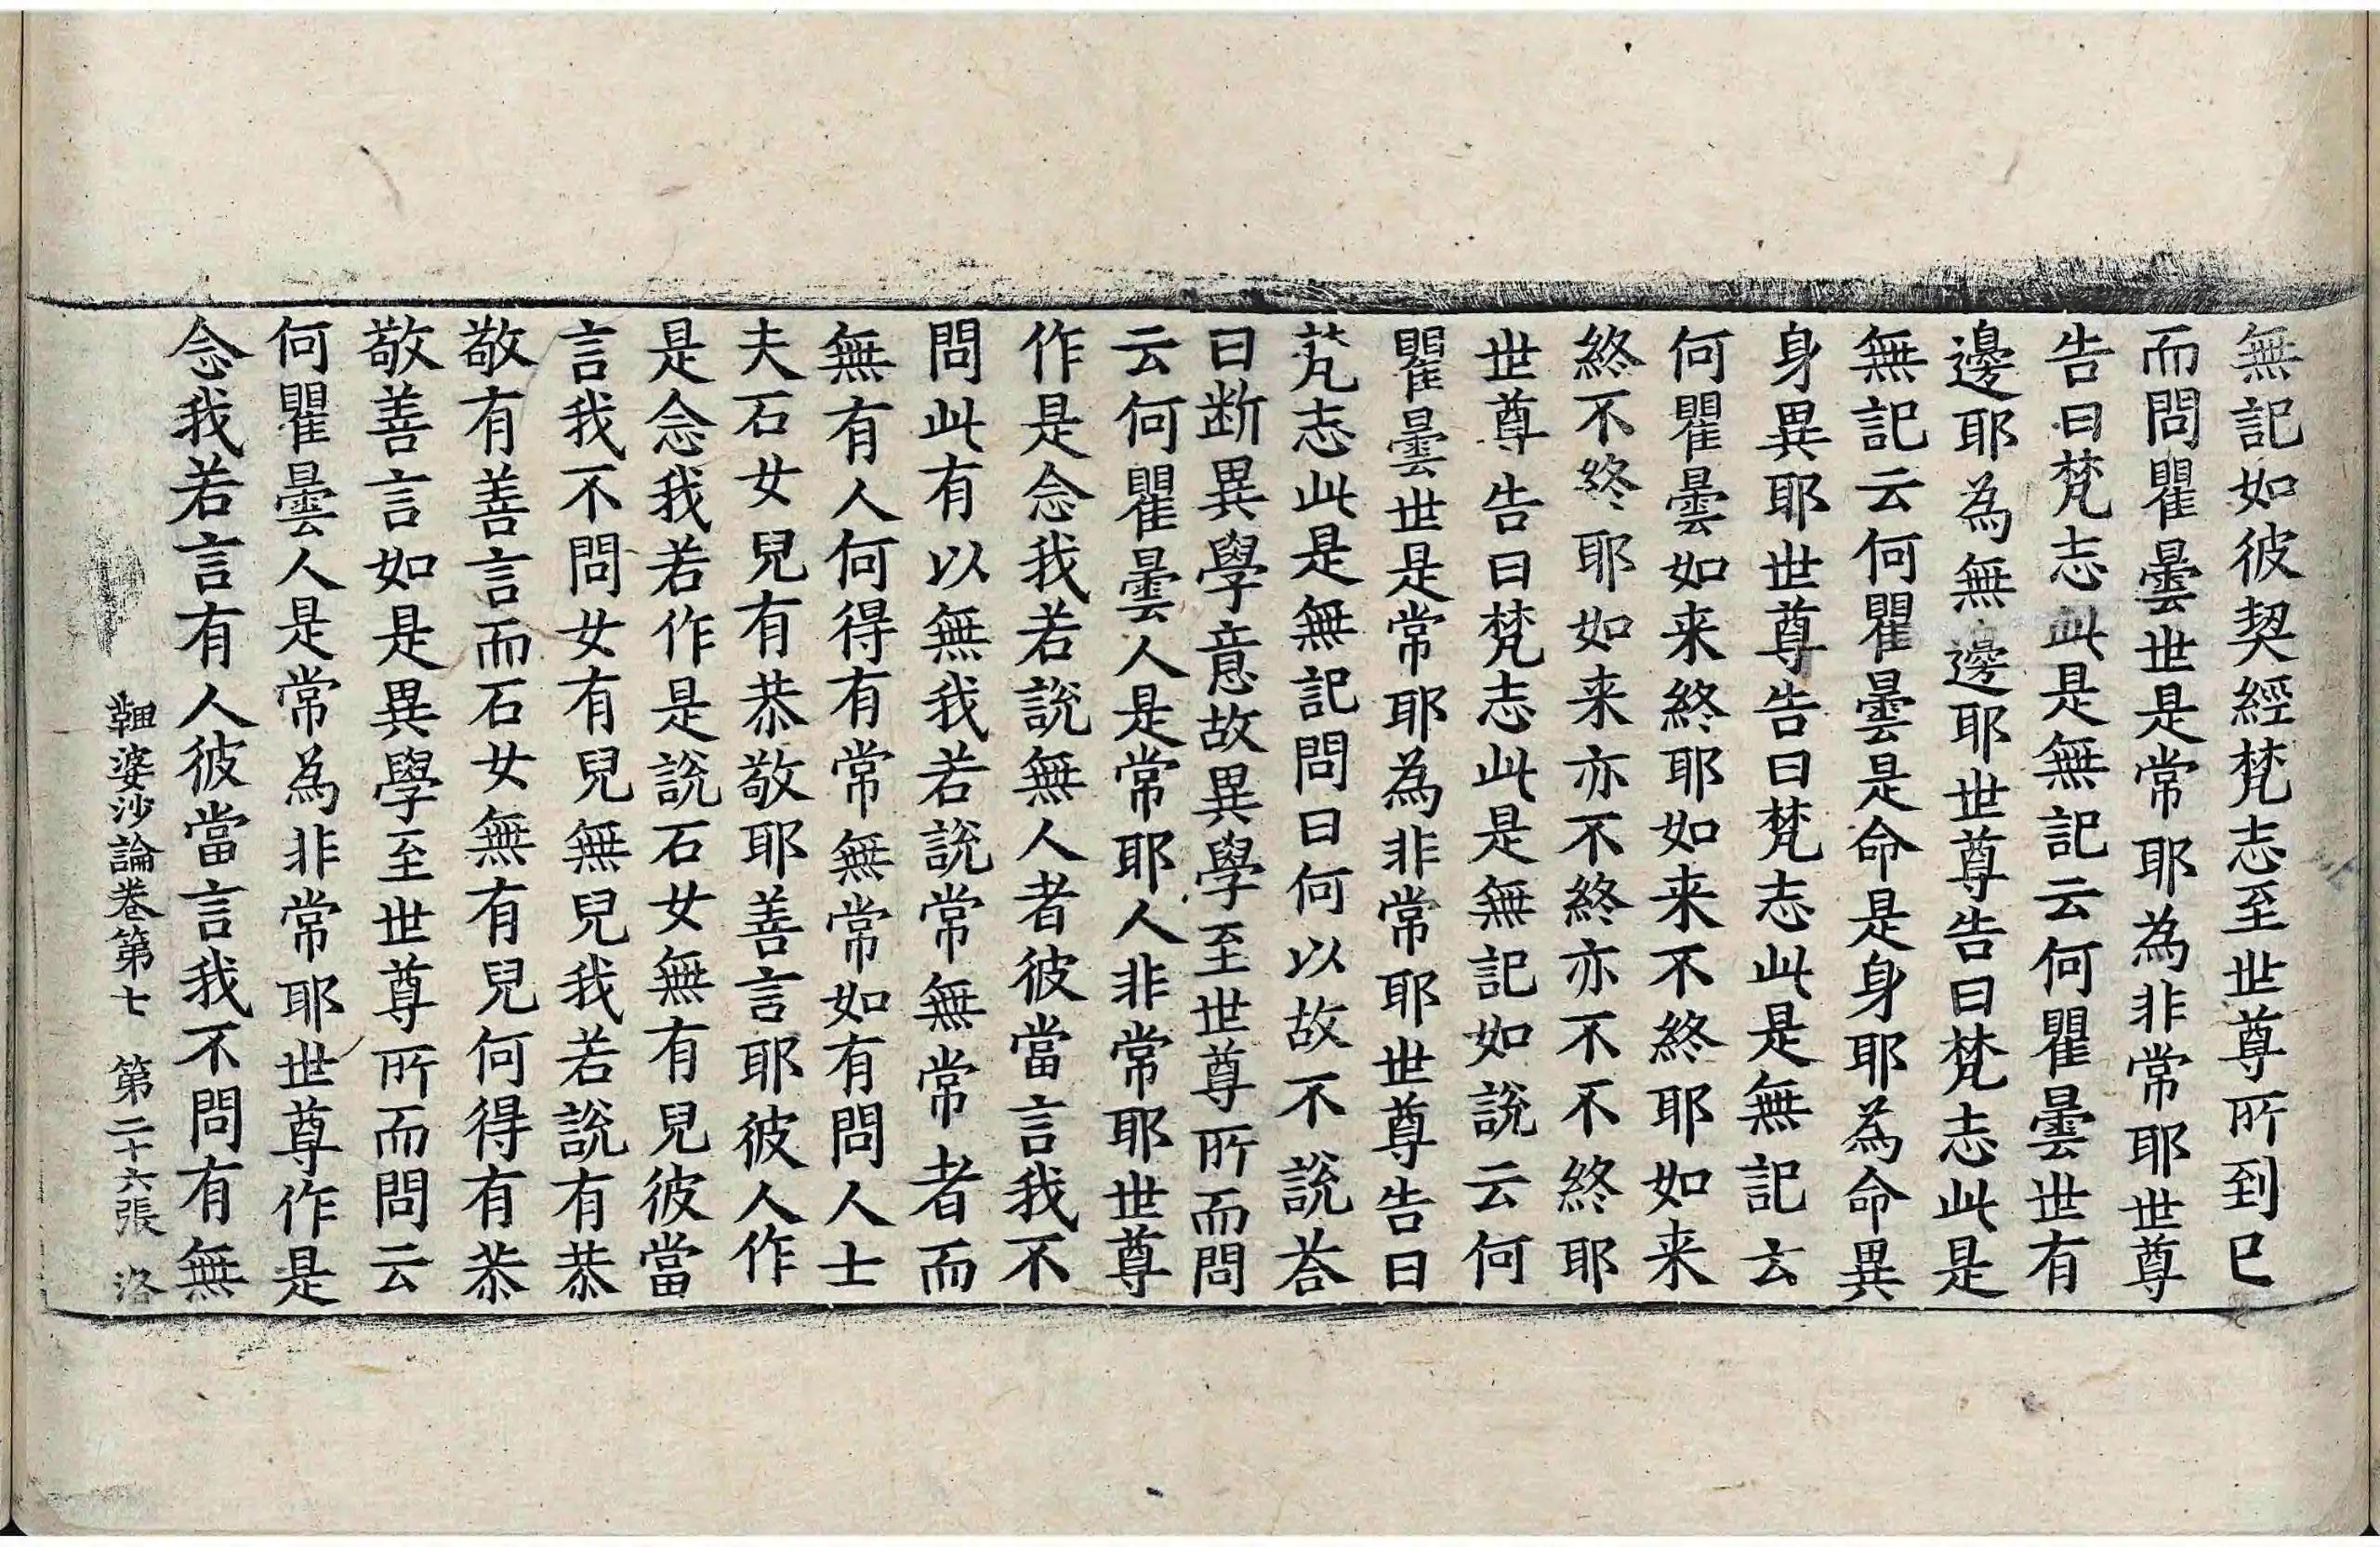 無記如彼契經梵志至世尊所到已
而問瞿曇世是常耶為非常耶世尊
告曰梵志此是無記云何瞿曇世有
邊耶為無邊耶世尊告曰梵志此是
無記云何瞿曇是命是身耶為命異
身異耶世尊告曰梵志此是無記云
何瞿曇如来終耶如来不終耶如来
終不終耶如来亦不終亦不不終耶
世尊告曰梵志此是無記如說云何
瞿曇世是常耶為非常耶世尊告曰
梵志此是無記問曰何以故不說荅
曰断異學意故異學至世尊所而問
云何瞿曇人是常耶人非常耶世尊
作是念我若說無人者彼當言我不
問此有以無我若說常無常者而
無有人何得有常無常如有問人士
夫石女兒有恭敬耶善言耶彼人作
是念我若作是說石女無有兒彼當
言我不問女有兒無兒我若說有恭
敬有善言而石女無有兒何得有恭
敬善言如是異學至世尊所而問云
何瞿曇人是常為非常耶世尊作是
念我若言有人彼當言我不問有無
鞞婆沙論卷第七 第二十六張 洛